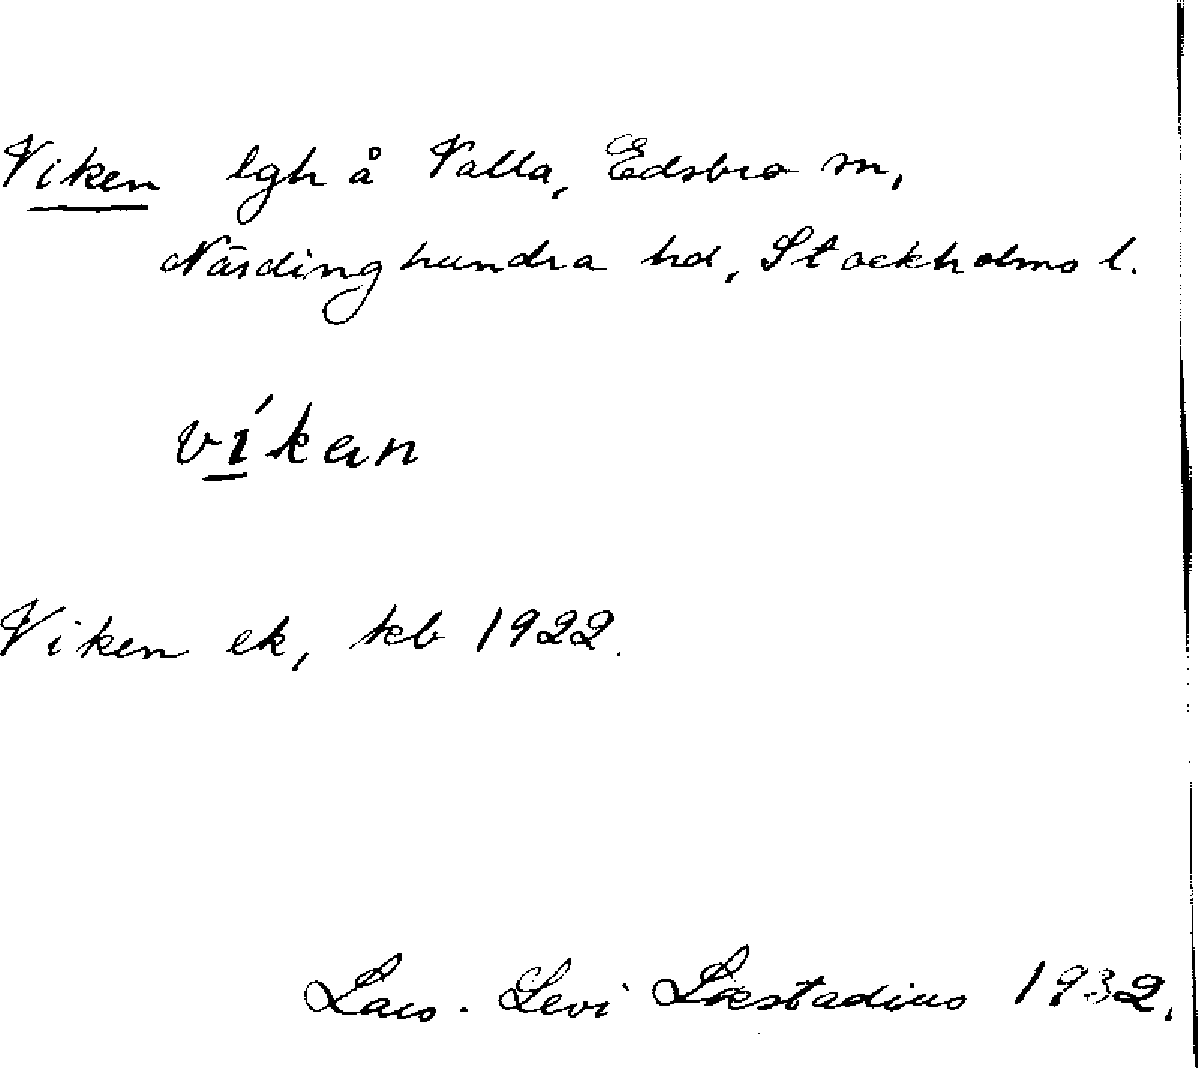 Viken lgh å Valla, Edsbro sn,
Närdinghundra hd, Stockholms l.
víkən
Viken ek, kb 1922.
Lars-Levi Læstadius 1932.